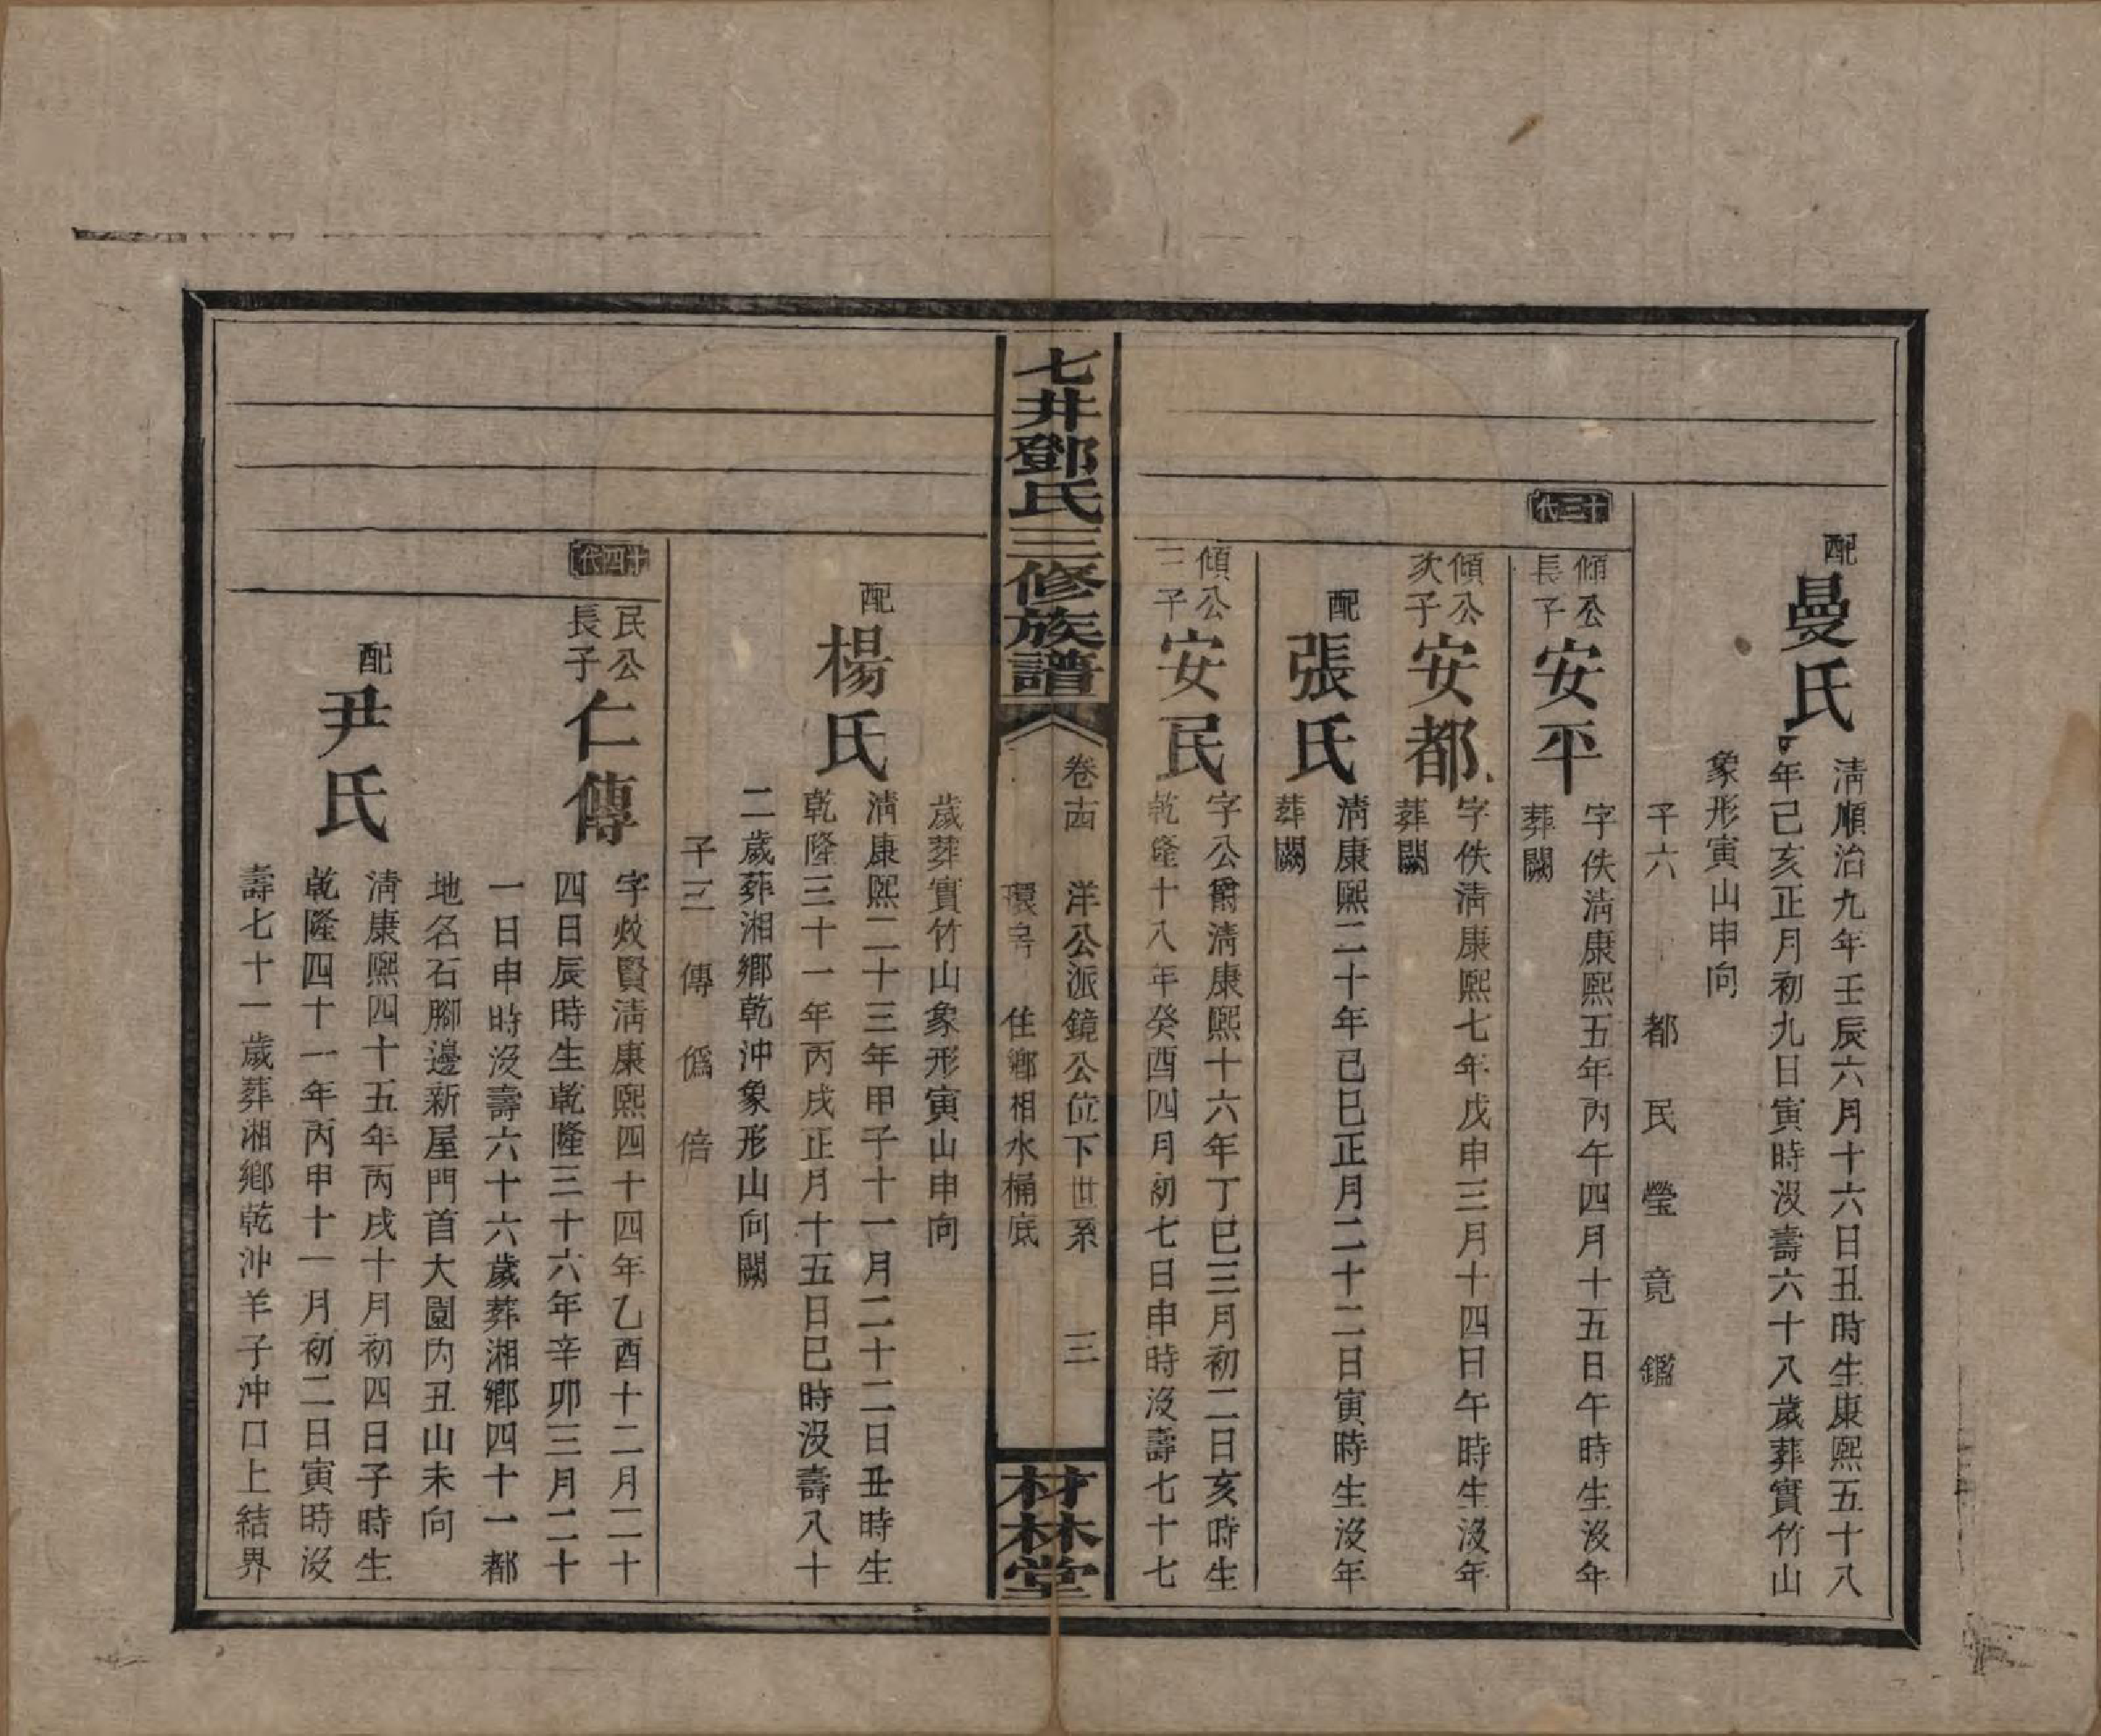 配
曼氏
清順治九年壬辰六月十六日丑時生康熙五十八
年己亥正月初九日寅時沒壽六十八歲葬實竹山
象形寅山申向
子六 都 民 瑩 竟 鑑
十三代
傾公
長子
安平
字佚清康熙五年丙午四月十五日午時生沒年
葬闕
傾公
次子
安都
字佚清康熙七年戊申三月十四日午時生沒年
葬闕
配
張氏
清康熙二十年已巳正月二十二日寅時生沒年
葬闕
傾公
三子
安民
字公爵清康熙十六年丁巳三月初二日亥時生
乾隆十八年癸酉四月初七日申時沒壽七十七
七井鄧氏三修族譜
卷十四 洋公派鏡公位下世系 三
住鄉相水桶底
材林堂
歲葬實竹山象形寅山申向
配
楊氏
清康熙二十三年甲子十一月二十二日丑時生
乾隆三十一年丙戌正月十五日巳時沒壽八十
二歲葬湘鄉乾沖象形山向闕
子三 傳 僞 倍
十四代
民公
長子
仁傳
字效賢清康熙四十四年乙酉十二月二十
四日辰時生乾隆三十六年辛卯三月二十
一日申時沒壽六十六歲葬湘鄉四十一都
地名石腳邊新屋門首大園內丑山未向
配
尹氏
清康熙四十五年丙戌十月初四日子時生
乾隆四十一年丙申十一月初二日寅時沒
壽七十一歲葬湘鄉乾沖羊子沖口上結界